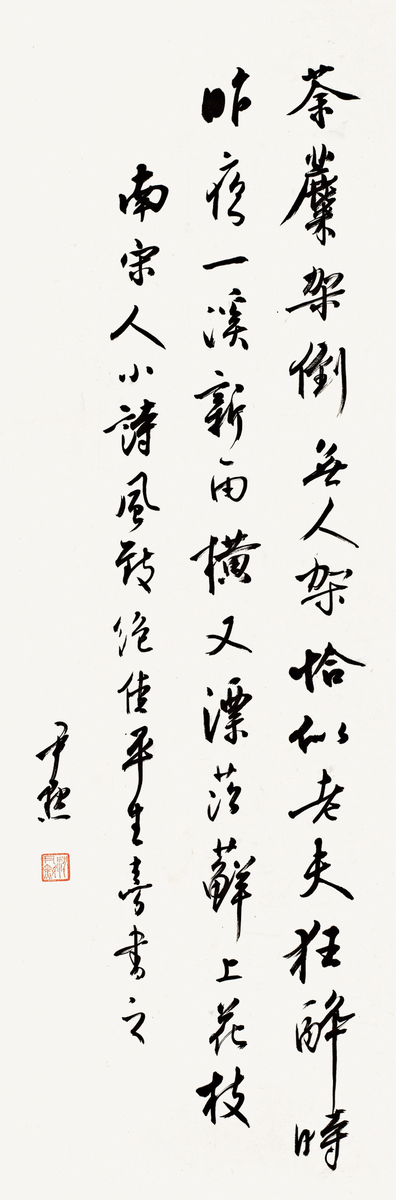 荼蘪架倒無人架恰似老夫狂醉時
昨夜一溪新雨橫又漂落蘚上花枝
南宋人小詩風致絕佳平生喜書之
尹默